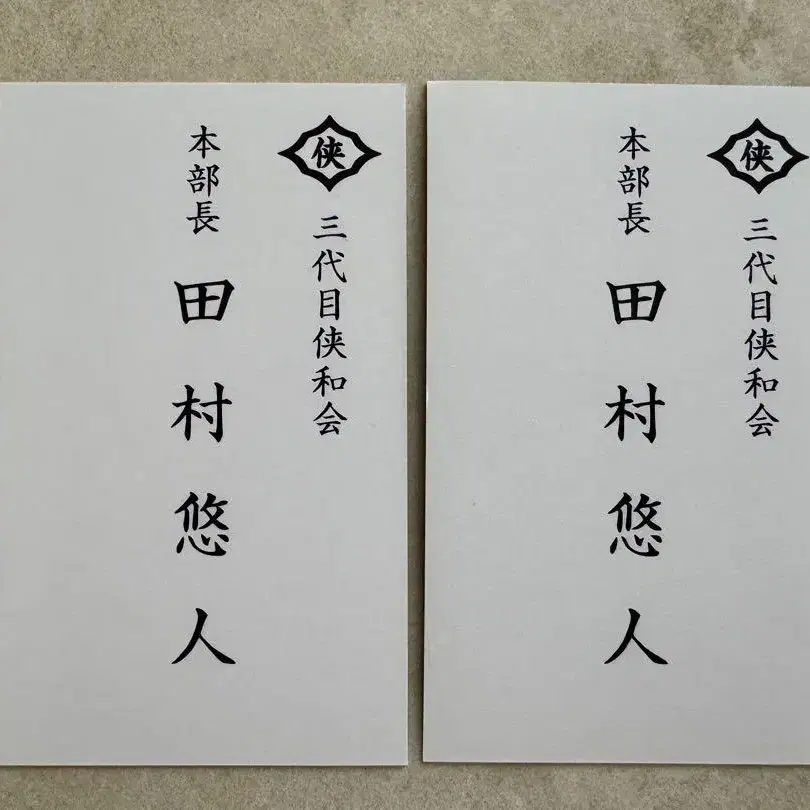 侠
三代目侠和会
本部長
田村悠人
侠
三代目侠和会
本部長
田村悠人